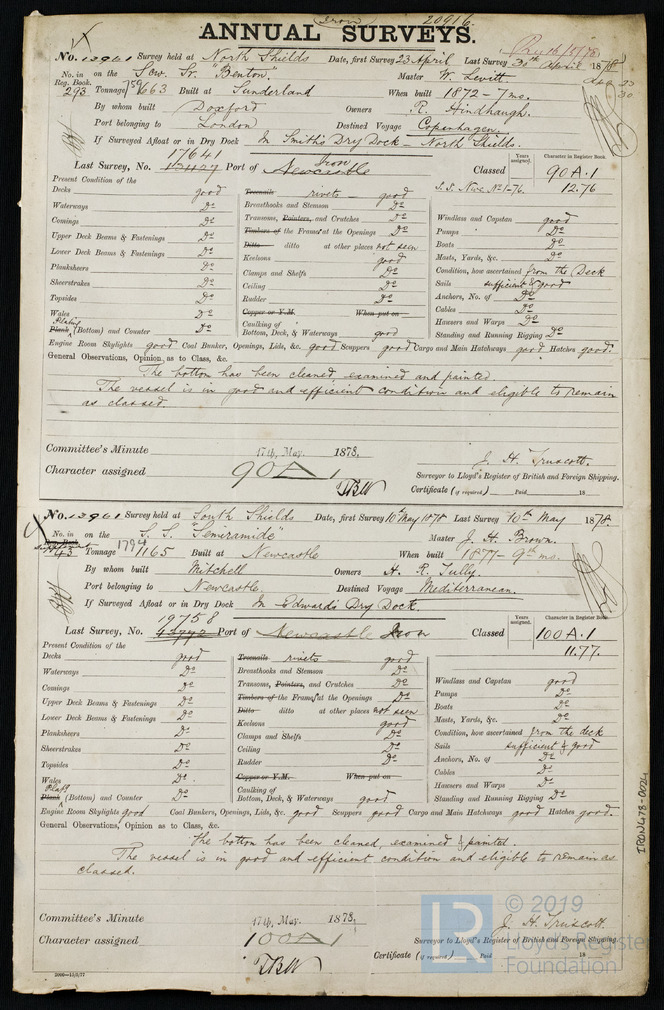 Iron 20916
ANNUAL SURVEYS.
No. 12961 Survey held at North Shields Date, first Survey 23 April Last Survey 30th April 1878
No. in Reg. Book. 293 on the Scw. Sr. "Benton" Master W. Levitt
Tonnage 759 663 Built at Sunderland When built 1872 - 7 mo.
By whom built Doxford Owners R. Hindhaugh.
Port belonging to London Destined Voyage Copenhagen.
If Surveyed Afloat or in Dry Dock In Smith's Dry Dock - North Shields.
17641 Iron
Last Survey, No. Port of Newcastle Classed Years assigned. Character in Register Book. 90A.1
S.S. Nwe. No 1-76. 12.76
Present Condition of the
Decks good Treenails rivets good
Waterways Do Breasthooks and Stemson Do
Comings Do Transoms, Pointers, and Crutches Do Windlass and Capstan good
Upper Deck Beams & Fastenings Do Timbers of the Frames at the Openings Do Pumps Do
Lower Deck Beams & Fastenings Do Ditto ditto at other places not seen Boats Do
Planksheers Do Keelsons good Masts, Yards, &c. Do
Sheerstrakes Do Clamps and Shelfs Do Condition, how ascertained from the Deck
Topsides Do Ceiling Do Sails sufficient & good
Wales Do Rudder Do Anchors, No. of Do
Plating Plank (Bottom) and Counter Do Copper or Y.M. When put on Cables Do
Caulking of Bottom, Deck, & Waterways good Hawsers and Warps Do
Standing and Running Rigging Do
Engine Room Skylights good Coal Bunker, Openings, Lids, &c. good Scuppers good Cargo and Main Hatchways good Hatches good.
General Observations, Opinion as to Class, &c.
The bottom has been cleaned examined and painted.
The vessel is in good and efficient condition and eligible to remain
as classed.
Committee's Minute 17th, May. 1878,
Character assigned 90A1
J. H. Truscott.
Surveyor to Lloyd's Register of British and Foreign Shipping.
Certificate (if required) Paid 18
No. 12961 Survey held at South Shields Date, first Survey 10th May 1878 Last Survey 10th May 1878.
No. in Reg. Book. Supplement 43 on the S. S. "Semiramide" Master J. H. Brown.
Tonnage 1794 1165 Built at Newcastle When built 1877 - 9th mo.
By whom built Mitchell Owners H. R. Tully.
Port belonging to Newcastle. Destined Voyage Mediterranean.
If Surveyed Afloat or in Dry Dock In Edwards Dry Dock.
19758
Last Survey, No. Port of Newcastle Iron Classed Years assigned. Character in Register Book. 100A.1
11.77.
Present Condition of the
Decks good Treenails rivets good
Waterways Do Breasthooks and Stemson Do
Comings Do Transoms, Pointers, and Crutches Do Windlass and Capstan good
Upper Deck Beams & Fastenings Do Timbers of the Frames at the Openings Do Pumps Do
Lower Deck Beams & Fastenings Do Ditto ditto at other places not seen Boats Do
Planksheers Do Keelsons good Masts, Yards, &c. Do
Sheerstrakes Do Clamps and Shelfs Do Condition, how ascertained from the deck
Topsides Do Ceiling Do Sails sufficient & good
Wales Do Rudder Do Anchors, No. of Do
Plank (Bottom) and Counter Do Copper or Y.M. When put on Cables Do
Caulking of Bottom, Deck, & Waterways good Hawsers and Warps Do
Standing and Running Rigging Do
Engine Room Skylights good Coal Bunkers, Openings, Lids, &c. good Scuppers good Cargo and Main Hatchways good Hatches good.
General Observations, Opinion as to Class, &c.
The bottom has been cleaned, examined & painted.
The vessel is in good and efficient condition and eligible to remain as
classed.
Committee's Minute 17th, May. 1878,
Character assigned 100A1
J. H. Truscott.
Surveyor to Lloyd's Register of British and Foreign Shipping
Certificate (if required) Paid 18
IRON478-0024
LR © 2019
Lloyd's Register
Foundation